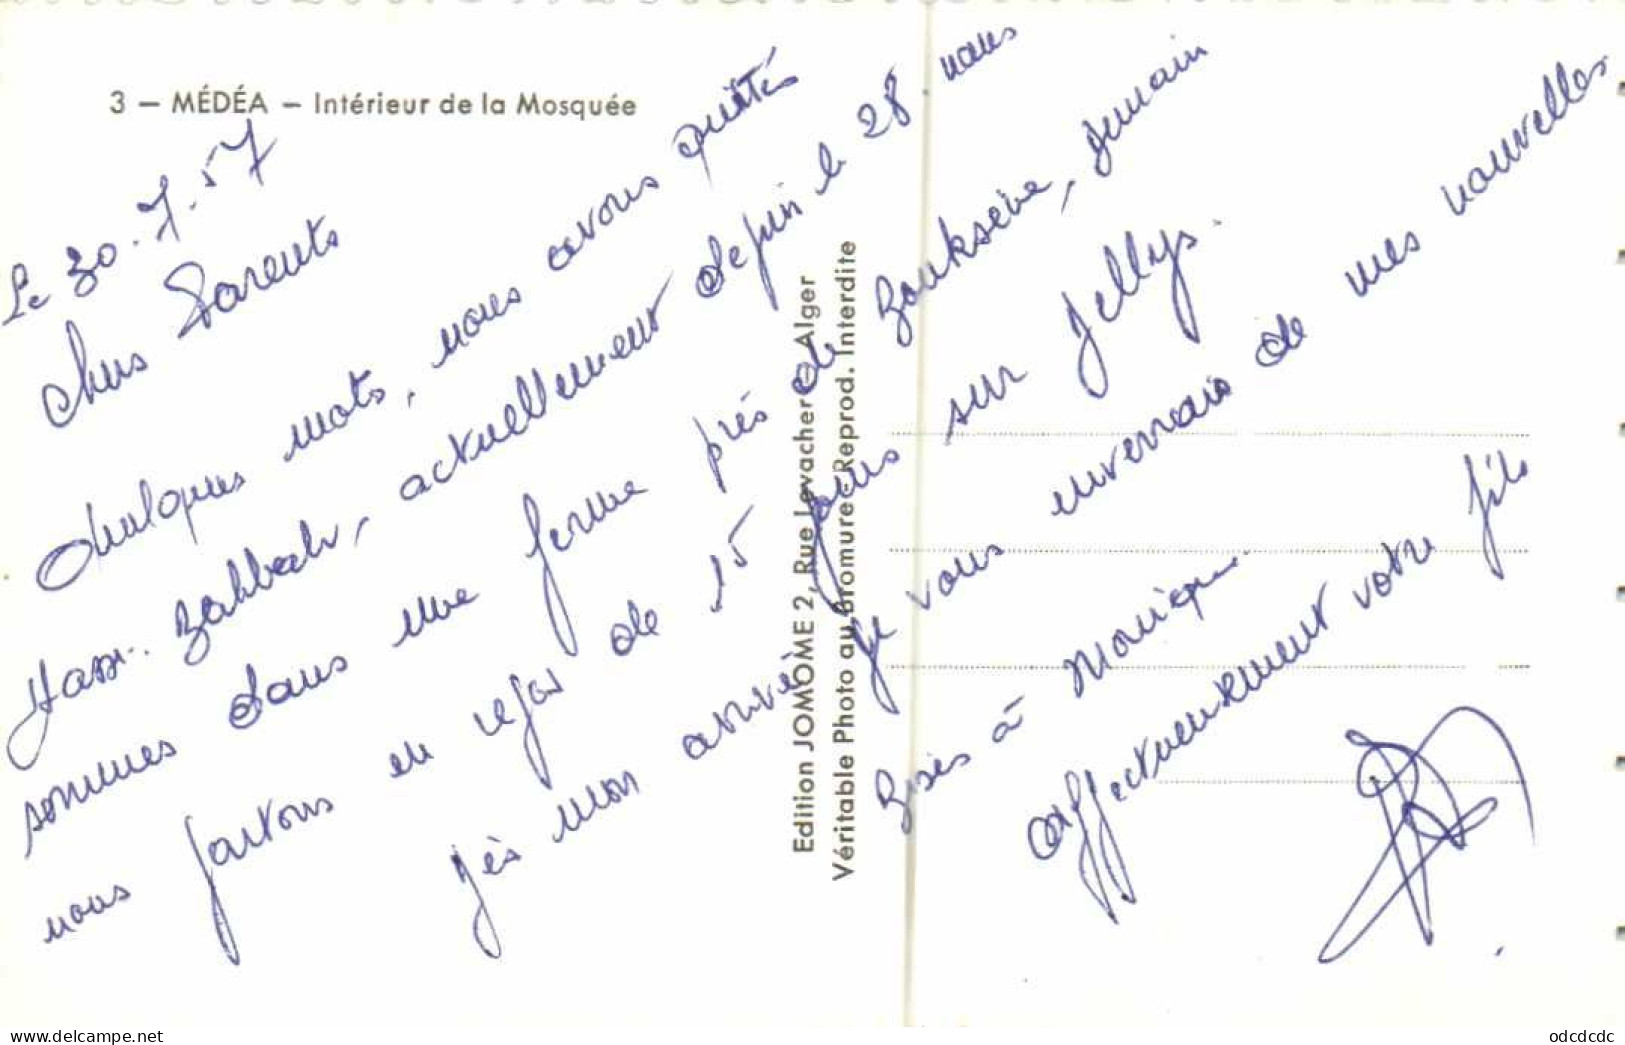 3 – MÉDÉA – Intérieur de la Mosquée
Le 30.7.57
Chers Parents
Quelques mots, nous avons quittés
Hassi. Zahbach, actuellement depuis le 28 nous
sommes dans une ferme près de Boukseine, demain
nous partons en repos de 15 jours sur Jellys.
Dès mon arrivé je vous enverrais de mes nouvelles
Bises à Monique.
affectueusement votre fils
Edition JOMOME 2, Rue Levacher – Alger
Véritable Photo au Bromure - Reprod. Interdite
www.delcampe.net
odcdcdc